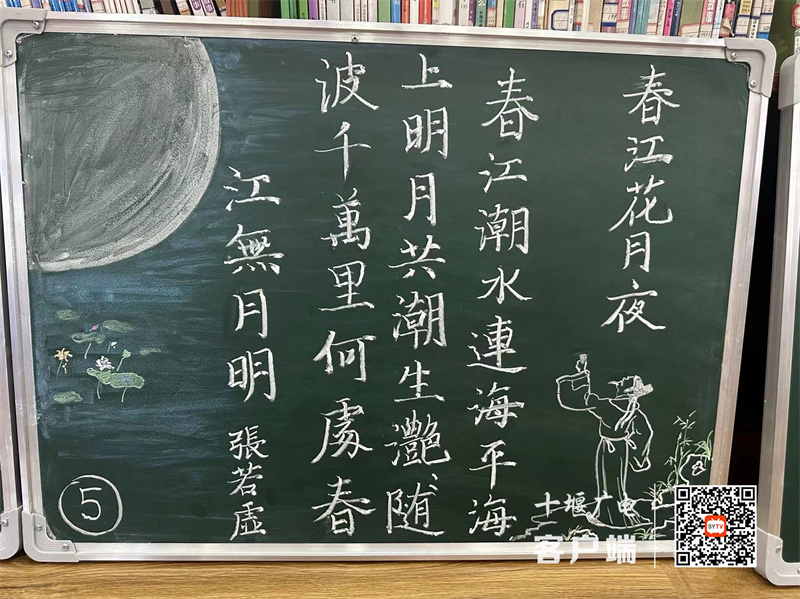 春江花月夜
春江潮水連海平海
上明月共潮生灧、随
波千萬里何處春
江無月明
張若虛
5
十堰广电
客户端
SYTV